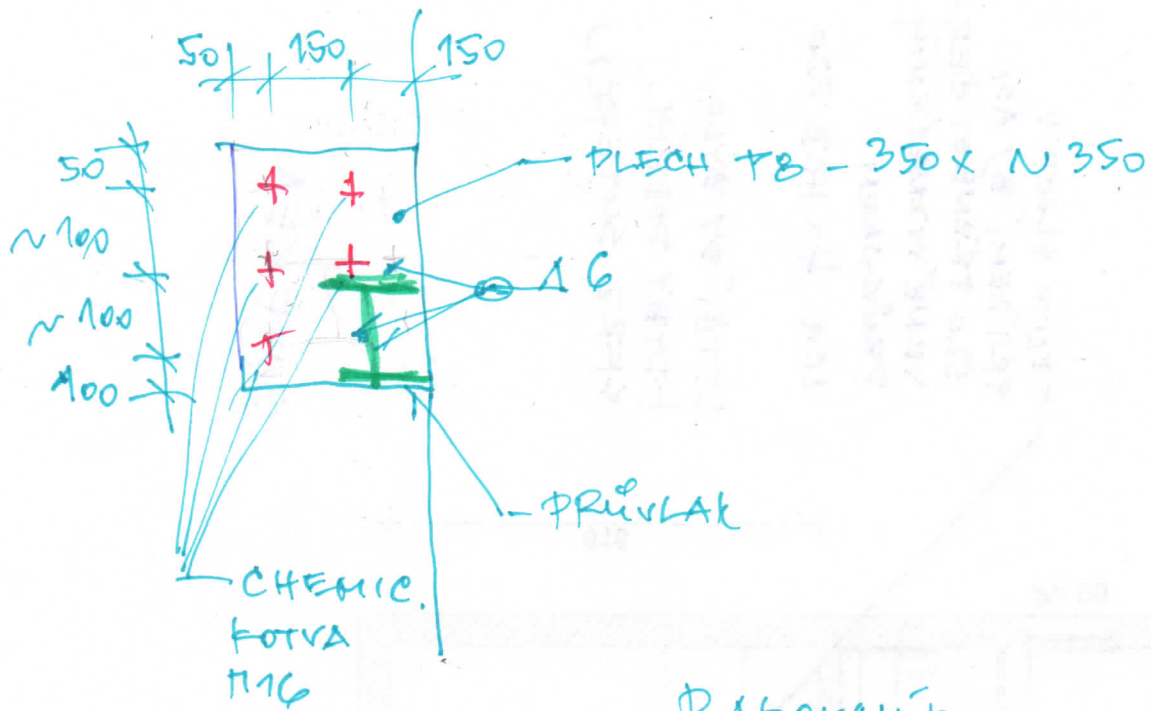 50 150 150
50
~100
~100
100
PLECH P8 - 350 x ~ 350
6
PRŮVLAK
CHEMIC.
KOTVA
M16